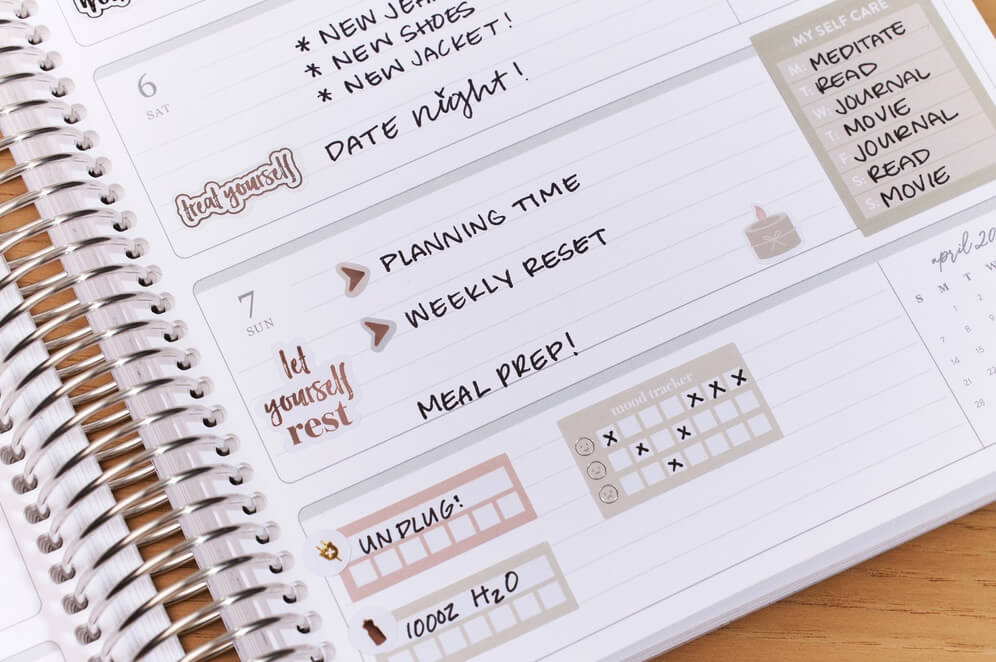 * NEW
* NEW SHOES
* NEW JACKET!
6
SAT
DATE night!
treat yourself
MY SELF CARE
M: MEDITATE
T: READ
W: JOURNAL
T: MOVIE
F: JOURNAL
S: READ
S: MOVIE
7
SUN
PLANNING TIME
WEEKLY RESET
MEAL PREP!
let
yourself
rest
april 20
S M T W
1 2
7 8 9
14 15 16
21 22
28
mood tracker
X X X X
X X
X
UNPLUG!
100OZ H2O